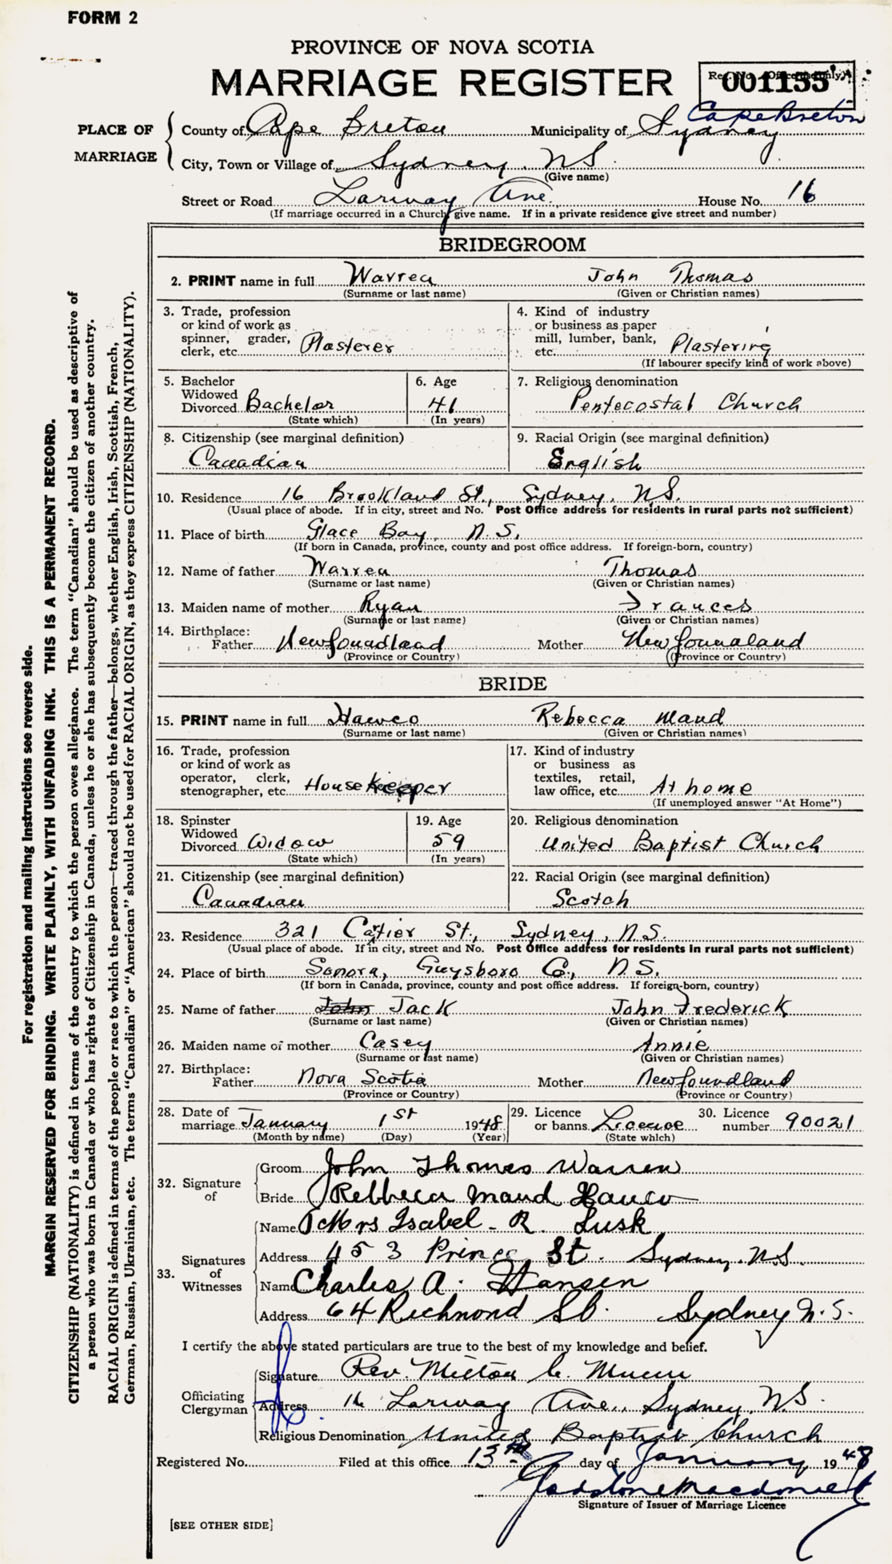 FORM 2
PROVINCE OF NOVA SCOTIA
MARRIAGE REGISTER
001155
PLACE OF MARRIAGE
County of Cape Breton Municipality of Sydney Cape Breton
City, Town or Village of Sydney, NS
(Give name)
Street or Road Larway Ave. House No. 16
(If marriage occurred in a Church give name. If in a private residence give street and number)
BRIDEGROOM
2. PRINT name in full Warren John Thomas
(Surname or last name) (Given or Christian names)
3. Trade, profession or kind of work as spinner, grader, clerk, etc. Plasterer
4. Kind of industry or business as paper mill, lumber, bank, etc. Plastering
(If labourer specify kind of work above)
5. Bachelor Widowed Divorced Bachelor
(State which)
6. Age 41
(In years)
7. Religious denomination
Pentecostal Church
8. Citizenship (see marginal definition)
Canadian
9. Racial Origin (see marginal definition)
English
10. Residence 16 Brookland St., Sydney, NS.
(Usual place of abode. If in city, street and No. Post Office address for residents in rural parts not sufficient)
11. Place of birth Glace Bay, N.S.
(If born in Canada, province, county and post office address. If foreign-born, country)
12. Name of father Warren Thomas
(Surname or last name) (Given or Christian names)
13. Maiden name of mother Ryan Frances
(Surname or last name) (Given or Christian names)
14. Birthplace:
Father Newfoundland Mother Newfoundland
(Province or Country) (Province or Country)
BRIDE
15. PRINT name in full Hawco Rebecca Maud
(Surname or last name) (Given or Christian names)
16. Trade, profession or kind of work as operator, clerk, stenographer, etc. Housekeeper
17. Kind of industry or business as textiles, retail, law office, etc. At home
(If unemployed answer "At Home")
18. Spinster Widowed Divorced Widow
(State which)
19. Age 59
(In years)
20. Religious denomination
United Baptist Church
21. Citizenship (see marginal definition)
Canadian
22. Racial Origin (see marginal definition)
Scotch
23. Residence 321 Catier St., Sydney, N.S.
(Usual place of abode. If in city, street and No. Post Office address for residents in rural parts not sufficient)
24. Place of birth Sonora, Guysboro Co., N.S.
(If born in Canada, province, county and post office address. If foreign-born, country)
25. Name of father John Jack John Frederick
(Surname or last name) (Given or Christian names)
26. Maiden name of mother Casey Annie
(Surname or last name) (Given or Christian names)
27. Birthplace:
Father Nova Scotia Mother Newfoundland
(Province or Country) (Province or Country)
28. Date of marriage January 1st 1948
(Month by name) (Day) (Year)
29. Licence or banns Licence
(State which)
30. Licence number 90021
32. Signature of
Groom John Thomas Warren
Bride Rebbeca Maud Hawco
33. Signatures of Witnesses
Name Mrs Isabel R Lusk
Address 453 Prince St. Sydney, N.S.
Name Charles A. Hansen
Address 64 Richmond St. Sydney N.S.
I certify the above stated particulars are true to the best of my knowledge and belief.
Officiating Clergyman
Signature Rev. Milton C.
Address 16 Larway Ave., Sydney, N.S.
Religious Denomination United Baptist Church
Registered No. Filed at this office 13th day of January 1948
Gladstone Macdonald
Signature of Issuer of Marriage Licence
[SEE OTHER SIDE]
For registration and mailing instructions see reverse side.
MARGIN RESERVED FOR BINDING. WRITE PLAINLY, WITH UNFADING INK. THIS IS A PERMANENT RECORD.
CITIZENSHIP (NATIONALITY) is defined in terms of the country to which the person owes allegiance. The term "Canadian" should be used as descriptive of
a person who was born in Canada or who has rights of Citizenship in Canada, unless he or she has subsequently become the citizen of another country.
RACIAL ORIGIN is defined in terms of the people or race to which the person—traced through the father—belongs, whether English, Irish, Scottish, French,
German, Russian, Ukrainian, etc. The terms "Canadian" or "American" should not be used for RACIAL ORIGIN, as they express CITIZENSHIP (NATIONALITY).